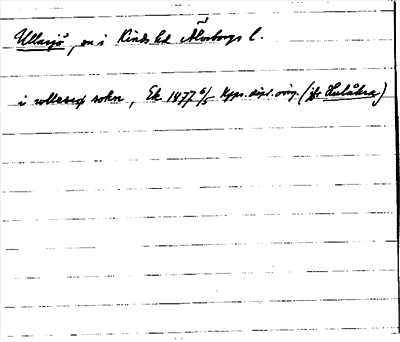 Ullasjö, sn i Kinds hd Älvsborgs l.
i wllasiø sokn, Ek 1477 6/5 Kpps. dipl. orig. (jfr Hulåkra)